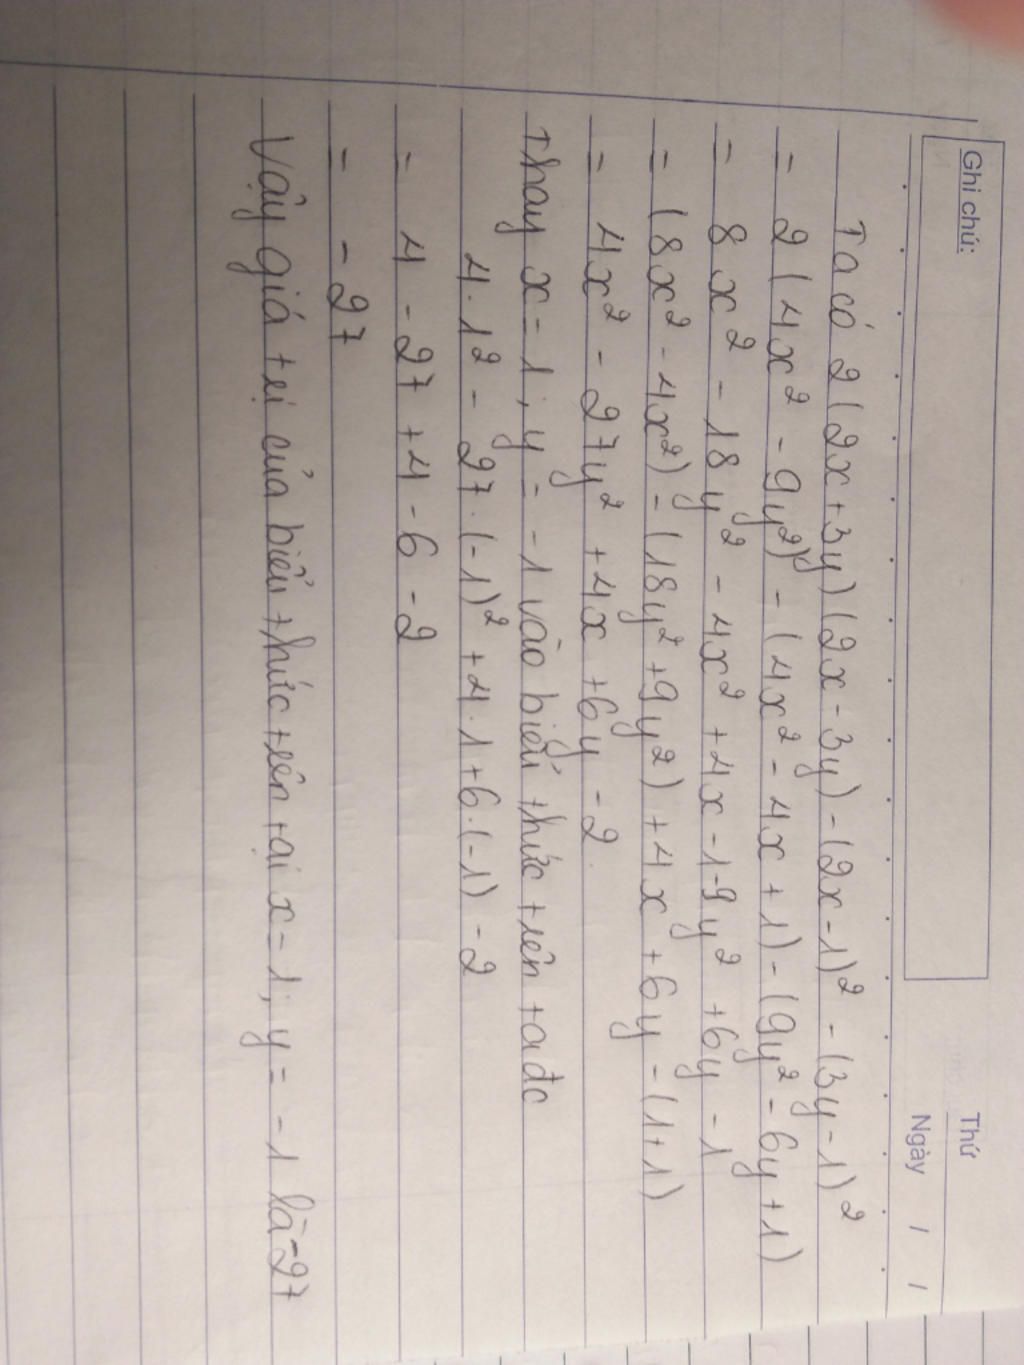 Ghi chú:
Thứ
Ngày / /
Ta có 2(2x+3y)(2x-3y)-(2x-1)² -(3y-1)²
= 2(4x² -9y²) -(4x² -4x+1)-(9y² -6y+1)
= 8x² -18y² -4x² +4x-1-9y² +6y-1
= (8x² -4x²) -(18y² +9y²) +4x +6y -(1+1)
= 4x² -27y² +4x +6y -2.
Thay x=1; y=-1 vào biểu thức trên ta đc
4.1² -27.(-1)² +4.1+6.(-1) -2
= 4 -27 +4 -6 -2
= -27
Vậy giá trị của biểu thức trên tại x=1; y=-1 là -27